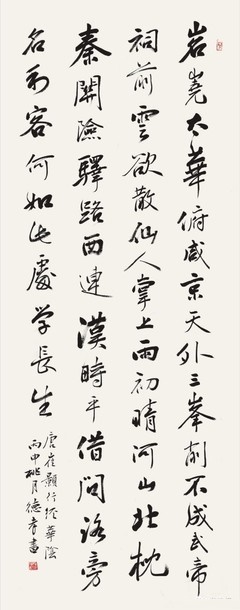 岧嶢太華俯咸京天外三峯削不成武帝
祠前雲欲散仙人掌上雨初晴河山北枕
秦關險驛路西連漢時平借問路旁
名利客何如此處学長生
唐崔顥行經華陰
丙申桃月德孝書